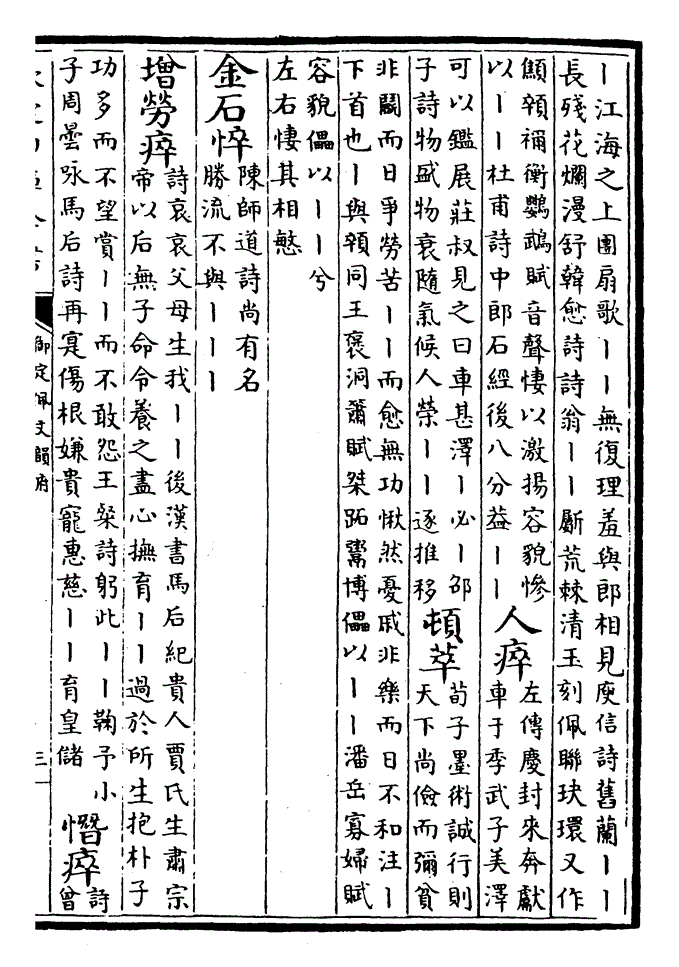 丨江海之上團扇歌丨丨無復理羞與郎相見庾信詩舊蘭丨丨
長殘花爛漫舒韓愈詩詩翁丨丨斸荒棘清玉刻佩聯玦環又作
顦顇禰衡鸚鵡賦音聲悽以激揚容貌慘
以丨丨杜甫詩中郎石經後八分益丨丨
人瘁
左傳慶封來奔獻
車于季武子美澤
可以鑑展莊叔見之曰車甚澤丨必丨邵
子詩物盛物衰隨氣候人榮丨丨逐推移
頓萃
荀子墨術誠行則
天下尚儉而彌貧
非鬭而日爭勞苦丨丨而愈無功愀然憂戚非樂而日不和注丨
下首也丨與顇同王褒洞簫賦桀跖鬻博儡以丨丨潘岳寡婦賦
容貌儡以丨丨兮
左右悽其相慜
金石悴
陳師道詩尚有名
勝流不與丨丨丨
增勞瘁
詩哀哀父母生我丨丨後漢書馬后紀貴人賈氏生肅宗
帝以后無子命令養之盡心撫育丨丨過於所生抱朴子
功多而不望賞丨丨而不敢怨王粲詩躬此丨丨鞠予小
子周曇咏馬后詩再寔傷根嫌貴寵惠慈丨丨育皇儲
憯瘁
詩
曾
御定佩文韻府
三